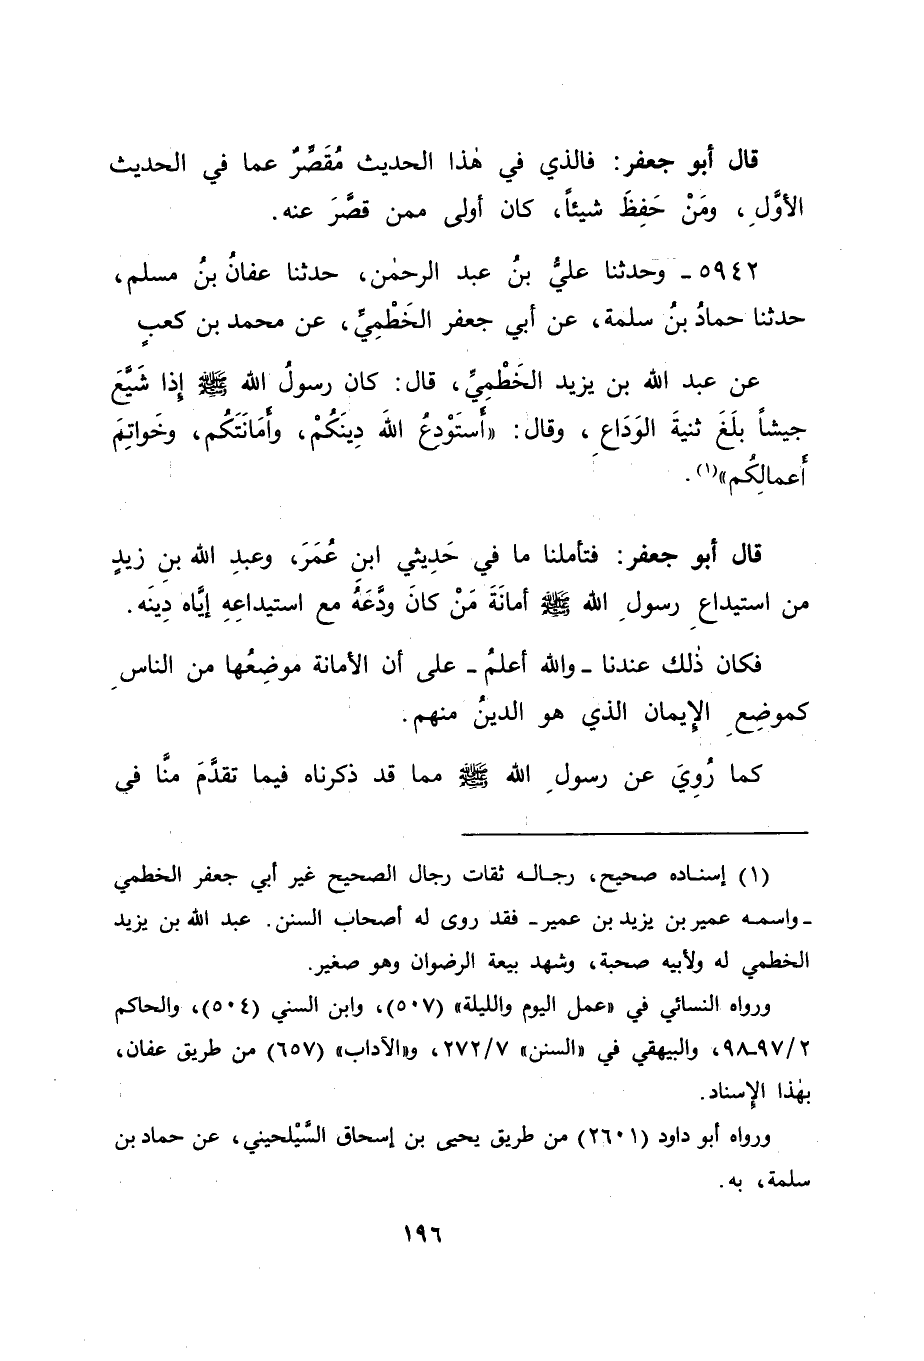 قال أبو جعفر: فالذي في هٰذا الحديث مُقَصِّرٌ عما في الحديث
الأوَّلِ، ومَنْ حَفِظَ شيئاً، كان أولى ممن قصَّرَ عنه.
٥٩٤٢ ـ وحدثنا عليُّ بنُ عبد الرحمٰن، حدثنا عفانُ بنُ مسلم،
حدثنا حمادُ بنُ سلمة، عن أبي جعفر الخَطْمِيِّ، عن محمد بن كعبٍ
عن عبد الله بن يزيد الخَطْمِيِّ، قال: كان رسولُ الله ﷺ إذا شَيَّعَ
جيشاً بلَغَ ثنيةَ الوَدَاعِ، وقال: «أستَوْدِعُ اللهَ دِينَكُمْ، وأمَانَتَكُم، وخَواتِمَ
أعمالِكُم»(١).
قال أبو جعفر: فتأملنا ما في حَدِيثي ابنِ عُمَرَ، وعبدِ الله بن زيدٍ
من استيداعِ رسولِ الله ﷺ أمانَةَ مَنْ كانَ ودَّعَهُ مع استيداعِهِ إيَّاه دِينَه.
فكان ذٰلك عندنا ـ والله أعلمُ ـ على أن الأمانة موضِعُها من الناسِ
كموضِعِ الإيمان الذي هو الدينُ منهم.
كما رُوِيَ عن رسولِ الله ﷺ مما قد ذكرناه فيما تقدَّمَ منَّا في
(١) إسناده صحيح، رجاله ثقات رجال الصحيح غير أبي جعفر الخطمي
ـ واسمه عمير بن يزيد بن عمير ـ فقد روى له أصحاب السنن. عبد الله بن يزيد
الخطمي له ولأبيه صحبة، وشهد بيعة الرضوان وهو صغير.
ورواه النسائي في «عمل اليوم والليلة» (٥٠٧)، وابن السني (٥٠٤)، والحاكم
٢/٩٧ـ٩٨، والبيهقي في «السنن» ٢٧٢/٧، و«الآداب» (٦٥٧) من طريق عفان،
بهٰذا الإسناد.
ورواه أبو داود (٢٦٠١) من طريق يحيى بن إسحاق السَّيْلحيني، عن حماد بن
سلمة، به.
١٩٦